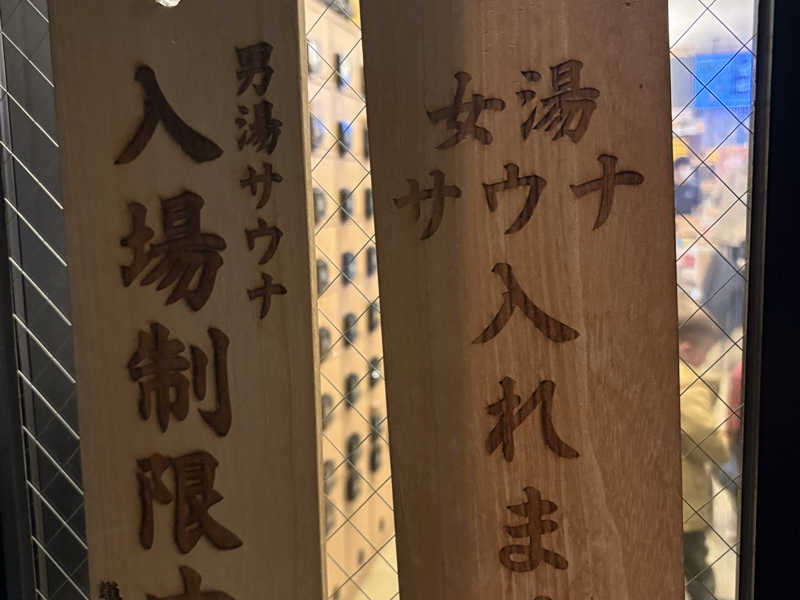 男湯サウナ
入場制限
女湯
サウナ
入れま